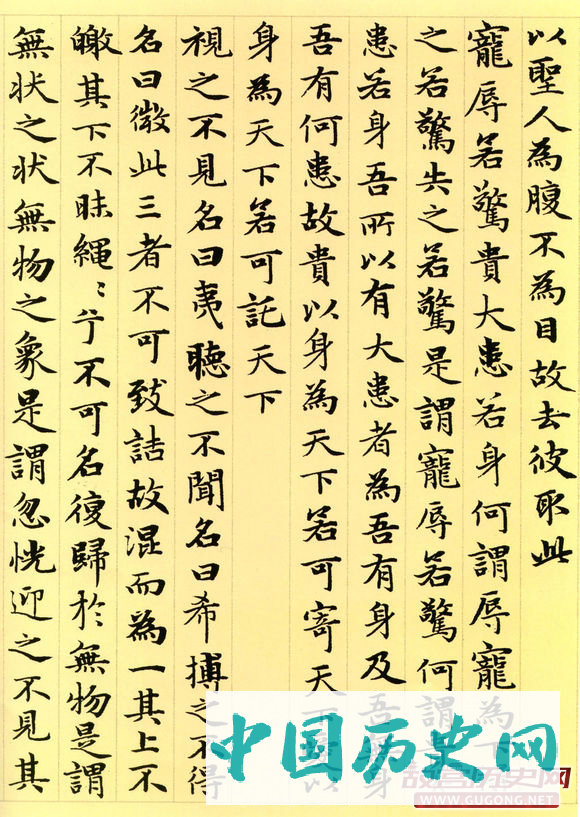 以聖人為腹不為目故去彼取此
寵辱若驚貴大患若身何謂辱寵為下
之若驚失之若驚是謂寵辱若驚何謂
患若身吾所以有大患者為吾有身及吾身
吾有何患故貴以身為天下若可寄天下以
身為天下若可託天下
視之不見名曰夷聽之不聞名曰希搏之不得
名曰微此三者不可致詰故混而為一其上不
皦其下不昧繩〻兮不可名復歸於無物是謂
無状之状無物之象是謂忽恍迎之不見其
中国历史网
故宫历史网
WWW.GUGONG.NET